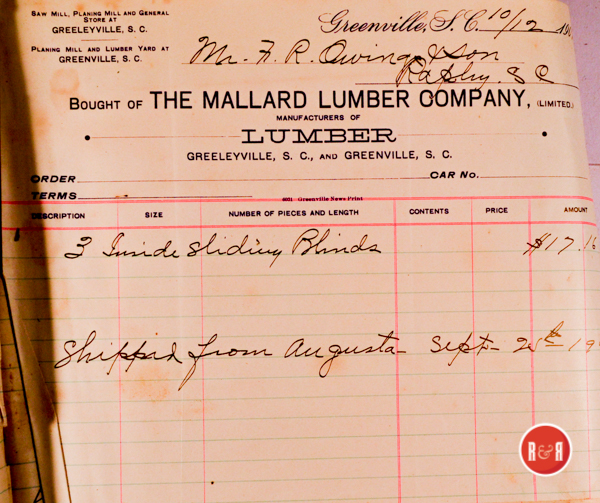 Saw Mill, Planing Mill and General
Store at
GREELEYVILLE, S. C.
Planing Mill and Lumber Yard at
GREENVILLE, S. C.
Greenville, S. C. 10/12 190
Mr. F. R. Owings & Son
S C
Bought of THE MALLARD LUMBER COMPANY, (LIMITED.)
MANUFACTURERS OF
LUMBER
GREELEYVILLE, S. C., AND GREENVILLE, S. C.
ORDER CAR No.
TERMS
6021 Greenville News Print
DESCRIPTION SIZE NUMBER OF PIECES AND LENGTH CONTENTS PRICE AMOUNT
3 Inside Sliding Blinds $17.15
Shipped from Augusta Sept 25th 19
R&R